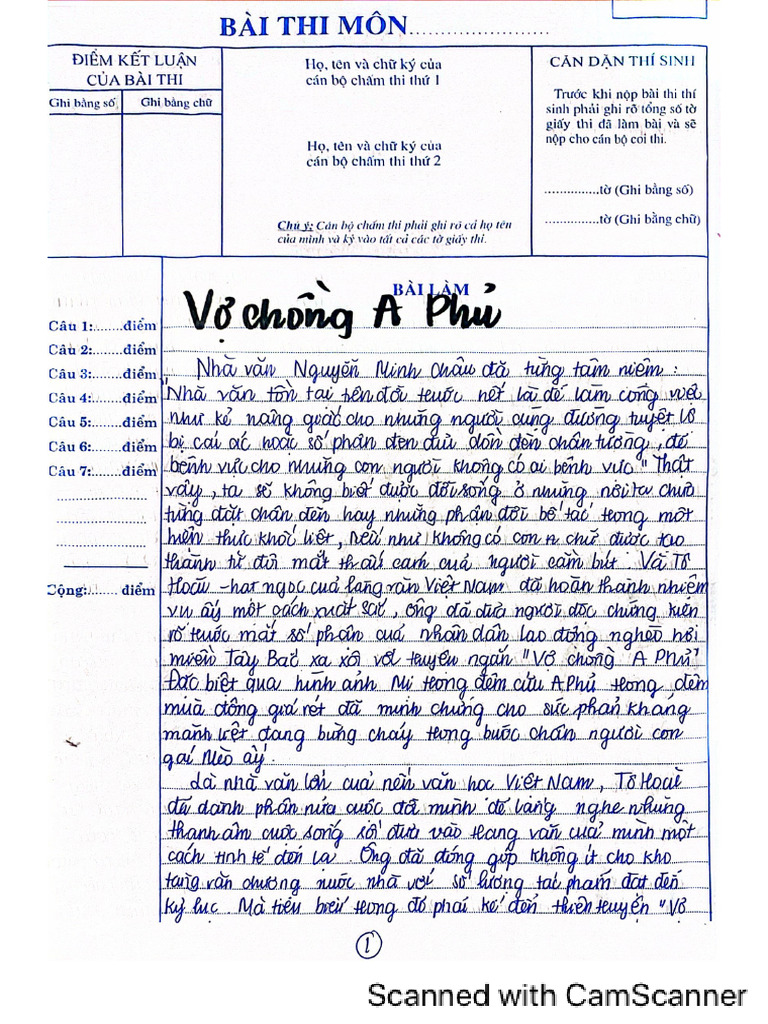 BÀI THI MÔN........................
ĐIỂM KẾT LUẬN
CỦA BÀI THI
Ghi bằng số
Ghi bằng chữ
Họ, tên và chữ ký của
cán bộ chấm thi thứ 1
Họ, tên và chữ ký của
cán bộ chấm thi thứ 2
Chú ý: Cán bộ chấm thi phải ghi rõ cả họ tên
của mình và ký vào tất cả các tờ giấy thi.
CĂN DẶN THÍ SINH
Trước khi nộp bài thi thí
sinh phải ghi rõ tổng số tờ
giấy thi đã làm bài và sẽ
nộp cho cán bộ coi thi.
...............tờ (Ghi bằng số)
...............tờ (Ghi bằng chữ)
Câu 1:.......điểm
Câu 2:.......điểm
Câu 3:.......điểm
Câu 4:.......điểm
Câu 5:.......điểm
Câu 6:.......điểm
Câu 7:.......điểm
Cộng:....... điểm
BÀI LÀM
Vợ chồng A Phủ
Nhà văn Nguyễn Minh Châu đã từng tâm niệm :
"Nhà văn tồn tại trên đời trước nết là để làm công việc
như kẻ nâng giấc cho những người cùng đường tuyệt lộ
bị cái ác hoặc số phận đen đủi dồn đến chân tường, để
bênh vực cho những con người không có ai bênh vực" Thật
vậy, ta sẽ không biết được đời sống ở những nơi ta chưa
từng đặt chân đến hay những phận đời bế tắc trong một
hiện thực khốc liệt, nếu như không có con chữ được tạo
thành từ đôi mắt thấu cảm của người cầm bút. Và Tô
Hoài - hạt ngọc của làng văn Việt Nam đã hoàn thành nhiệm
vụ ấy một cách xuất sắc, ông đã đưa người đọc chứng kiến
rõ trước mắt số phận của nhân dân lao động nghèo nơi
miền Tây Bắc xa xôi với truyện ngắn "Vợ chồng A Phủ"
Đặc biệt qua hình ảnh Mị trong đêm cứu A Phủ trong đêm
mùa đông giá rét đã minh chứng cho sức phản kháng
mãnh liệt đang bừng cháy trong bước chân người con
gái Mèo ấy.
Là nhà văn lớn của nền văn học Việt Nam, Tô Hoài
đã dành phân nửa cuộc đời mình để lắng nghe những
thanh âm cuộc sống rồi đưa vào trang văn của mình một
cách tinh tế đến lạ. Ông đã đóng góp không ít cho kho
tàng văn chương nước nhà với số lượng tác phẩm đạt đến
kỷ lục. Mà tiêu biểu trong đó phải kể đến thiên truyện "Vợ
1
Scanned with CamScanner